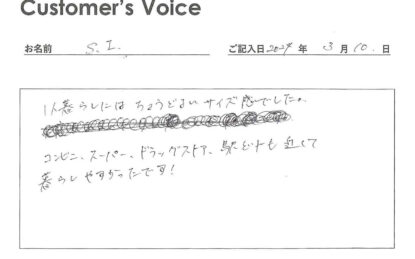 Customer's Voice
お名前 S.I. ご記入日 2024 年 3 月 10 日
1人暮らしには ちょうどよい サイズ感でした。
コンビニ、スーパー、ドラッグストア、駅なども近くて
暮らしやすかったです！